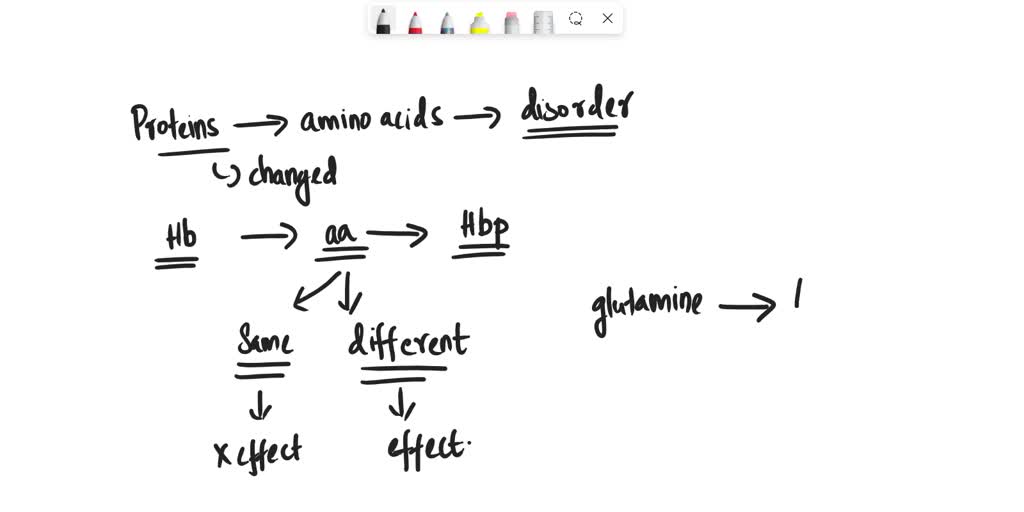 Proteins → amino acids → disorder
↳ changed
Hb → aa → Hbp
glutamine →
Same different
x effect effect.